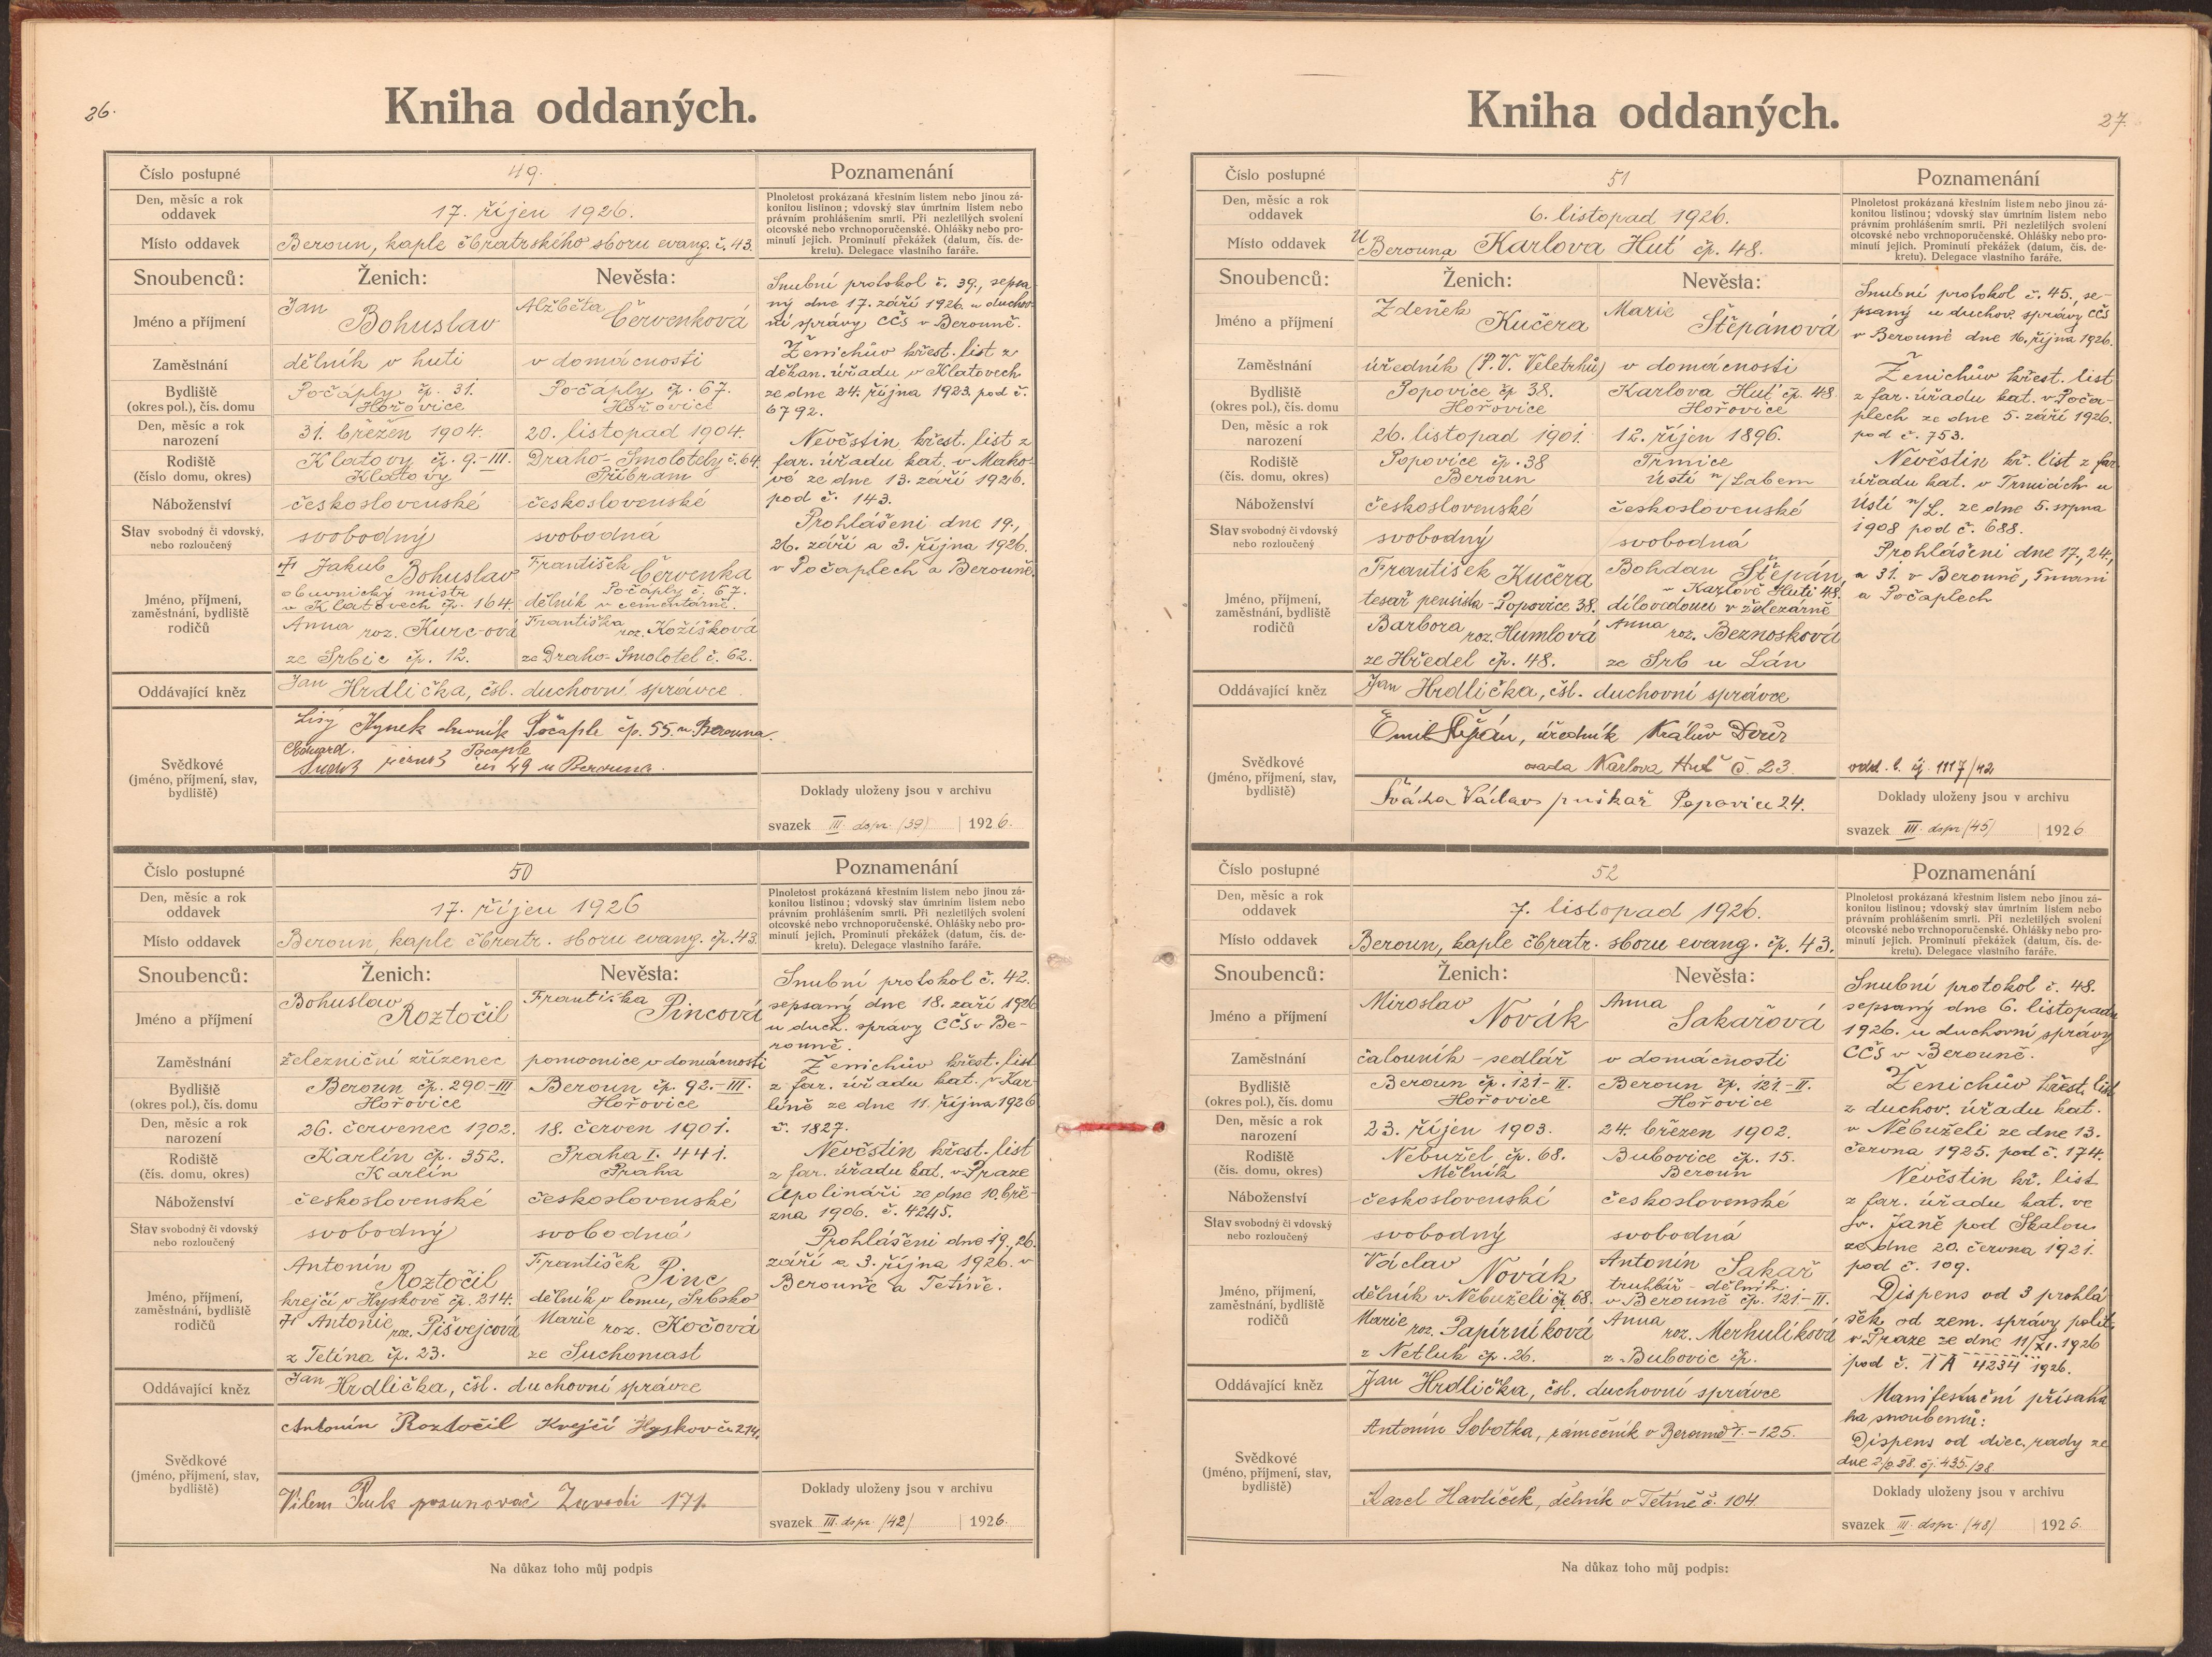 26.
Kniha oddaných.
Číslo postupné 49.
Poznamenání
Den, měsíc a rok oddavek 17. říjen 1926.
Plnoletost prokázaná křestním listem nebo jinou zá-
konitou listinou; vdovský stav úmrtním listem nebo
právním prohlášením smrti. Při nezletilých svolení
otcovské nebo vrchnoporučenské. Ohlášky nebo pro-
minutí jejich. Prominutí překážek (datum, čís. de-
kretu). Delegace vlastního faráře.
Místo oddavek Beroun, kaple čbratrského sboru evang. č. 43.
Snoubenců: Ženich: Nevěsta:
Jméno a příjmení Jan Bohuslav Alžběta Červenková
Zaměstnání dělník v huti v domácnosti
Bydliště Počáply čp. 31. Počáply čp. 67.
(okres pol.), čís. domu Hořovice Hořovice
Den, měsíc a rok narození 31. březen 1904. 20. listopad 1904.
Rodiště Klatovy čp. 9.-III. Draho-Smolotely č. 64.
(číslo domu, okres) Klatovy Příbram
Náboženství československé československé
Stav svobodný či vdovský, nebo rozloučený svobodný svobodná
Jméno, příjmení, zaměstnání, bydliště rodičů
Jakub Bohuslav František Červenka
obuvnický mistr Počáply č. 67.
v Klatovech čp. 164. dělník v cementárně.
Anna roz. Kurc-ová Františka roz. Kožíšková
ze Srbic čp. 12. ze Draho-Smolotel č. 62.
Oddávající kněz Jan Hrdlička, čsl. duchovní správce
Svědkové
(jméno, příjmení, stav,
bydliště)
Lisý Hynek Počaple čp. 55. u Berouna.
Eduard Počaple
čís 49 u Berouna.
Snubní protokol č. 39., sepsa-
ný dne 17. září 1926 u duchov-
ní správy CČS v Berouně.
Ženichův křest. list z
děkan. úřadu v Klatovech
ze dne 24. října 1923 pod č.
6792.
Nevěstin křest. list z
far. úřadu kat. v Mako-
vé ze dne 13. září 1926.
pod č. 143.
Prohlášení dne 19.,
26. září a 3. října 1926.
v Počaplech a Berouně.
Doklady uloženy jsou v archivu
svazek III. dspr. (39) 1926.
Číslo postupné 50
Poznamenání
Den, měsíc a rok oddavek 17. říjen 1926
Plnoletost prokázaná křestním listem nebo jinou zá-
konitou listinou; vdovský stav úmrtním listem nebo
právním prohlášením smrti. Při nezletilých svolení
otcovské nebo vrchnoporučenské. Ohlášky nebo pro-
minutí jejich. Prominutí překážek (datum, čís. de-
kretu). Delegace vlastního faráře.
Místo oddavek Beroun, kaple čbratr. sboru evang. čp. 43.
Snoubenců: Ženich: Nevěsta:
Jméno a příjmení Bohuslav Roztočil Františka Pincová
Zaměstnání železniční zřízenec pomocnice v domácnosti
Bydliště Beroun čp. 290-III Beroun čp. 92.-III.
(okres pol.), čís. domu Hořovice Hořovice
Den, měsíc a rok narození 26. červenec 1902. 18. červen 1901.
Rodiště Karlín čp. 352. Praha I. 441.
(čís. domu, okres) Karlín Praha
Náboženství československé československé
Stav svobodný či vdovský nebo rozloučený svobodný svobodná
Jméno, příjmení, zaměstnání, bydliště rodičů
Antonín Roztočil František Pinc
krejčí v Hyskově čp. 214. dělník v lomu, Srbsko
Antonie roz. Pišvejcová Marie roz. Kočová
z Tetína čp. 23. ze Suchomast
Oddávající kněz Jan Hrdlička, čsl. duchovní správce
Svědkové
(jméno, příjmení, stav,
bydliště)
Antonín Roztočil Krejčí Hyskov č. 214.
Vilem Puk posunovač Zavodi 171.
Snubní protokol č. 42.
sepsaný dne 18. září 1926
u duch. správy CČS v Be-
rouně.
Ženichův křest. list
z far. úřadu kat. v Kar-
líně ze dne 11. října 1926
č. 1827.
Nevěstin křest. list
z far. úřadu kat. v Praze
Apolináři ze dne 10. bře-
zna 1906. č. 4245.
Prohlášení dne 19., 26.
září a 3. října 1926. v
Berouně a Tetíně.
Doklady uloženy jsou v archivu
svazek III. dspr. (42) 1926.
Na důkaz toho můj podpis
27.
Kniha oddaných.
Číslo postupné 51
Poznamenání
Den, měsíc a rok oddavek 6. listopad 1926.
Plnoletost prokázaná křestním listem nebo jinou zá-
konitou listinou; vdovský stav úmrtním listem nebo
právním prohlášením smrti. Při nezletilých svolení
otcovské nebo vrchnoporučenské. Ohlášky nebo pro-
minutí jejich. Prominutí překážek (datum, čís. de-
kretu). Delegace vlastního faráře.
Místo oddavek U Berouna Karlova Huť čp. 48.
Snoubenců: Ženich: Nevěsta:
Jméno a příjmení Zdeněk Kučera Marie Štěpánová
Zaměstnání úředník (P.V. Veletrhů) v domácnosti
Bydliště Popovice čp 38. Karlova Huť čp. 48
(okres pol.), čís. domu Hořovice Hořovice
Den, měsíc a rok narození 26. listopad 1901. 12. říjen 1896.
Rodiště Popovice čp. 38 Trmice
(čís. domu, okres) Beroun Ústí n/Labem
Náboženství československé československé
Stav svobodný či vdovský nebo rozloučený svobodný svobodná
Jméno, příjmení, zaměstnání, bydliště rodičů
František Kučera Bohdan Štěpán,
v Karlově Huti 48.
tesař pensista - Popovice 38. dílovedoucí v železárně
Barbora roz. Humlová Anna roz. Beznosková
ze Hředel čp. 48. ze Srb u Lán
Oddávající kněz Jan Hrdlička, čsl. duchovní správce
Svědkové
(jméno, příjmení, stav,
bydliště)
Emil Štěpán, úředník Králův Dvůr
osada Karlova Huť č. 23.
Švácha Václav puškař Popovice 24.
Snubní protokol č. 45., se-
psaný u duchov. správy CČS
v Berouně dne 16. října 1926.
Ženichův křest. list
z far. úřadu kat. v Poča-
plech ze dne 5. září 1926.
pod č. 753.
Nevěstin kř. list z far.
úřadu kat. v Trmicích u
Ústí n/L. ze dne 5. srpna
1908 pod č. 688.
Prohlášení dne 17, 24,
a 31. v Berouně, Tmani
a Počaplech
odd. l. čj. 1117/42
Doklady uloženy jsou v archivu
svazek III. dspr (45) 1926
Číslo postupné 52
Poznamenání
Den, měsíc a rok oddavek 7. listopad 1926.
Plnoletost prokázaná křestním listem nebo jinou zá-
konitou listinou; vdovský stav úmrtním listem nebo
právním prohlášením smrti. Při nezletilých svolení
otcovské nebo vrchnoporučenské. Ohlášky nebo pro-
minutí jejich. Prominutí překážek (datum, čís. de-
kretu). Delegace vlastního faráře.
Místo oddavek Beroun, kaple čbratr. sboru evang. čp. 43.
Snoubenců: Ženich: Nevěsta:
Jméno a příjmení Miroslav Novák Anna Sakařová
Zaměstnání čalouník - sedlář v domácnosti
Bydliště Beroun čp. 121-II. Beroun čp. 121-II.
(okres pol.), čís. domu Hořovice Hořovice
Den, měsíc a rok narození 23. říjen 1903. 24. březen 1902.
Rodiště Nebužel čp. 68. Bubovice čp. 15.
(čís. domu, okres) Mělník Beroun
Náboženství československé československé
Stav svobodný či vdovský nebo rozloučený svobodný svobodná
Jméno, příjmení, zaměstnání, bydliště rodičů
Václav Novák Antonín Sakař
truhlář - dělník
dělník v Nebuželi čp 68. v Berouně čp. 121-II.
Marie roz. Papírníková Anna roz. Merhulíková
z Netluk čp. 26. z Bubovic čp.
Oddávající kněz Jan Hrdlička, čsl. duchovní správce
Svědkové
(jméno, příjmení, stav,
bydliště)
Antonín Sobotka, zámečník v Berouně - 125.
Karel Havlíček, dělník v Tetíně č. 104
Snubní protokol č. 48.
sepsaný dne 6. listopadu
1926. u duchovní správy
CČS v Berouně.
Ženichův křest. list
z duchov. úřadu kat.
v Nebuželi ze dne 13.
června 1925. pod č. 174.
Nevěstin kř. list
z far. úřadu kat. ve
Sv. Janě pod Skalou
ze dne 20. června 1921.
pod č. 109.
Dispens od 3 prohlá
šek od zem. správy polit.
v Praze ze dne 11/XI. 1926
pod č. 1 A 4234 1926.
Manifestační přísaha
ha snoubenců:
Dispens od diec. rady ze
dne 2/2.28. čj. 435/28
Doklady uloženy jsou v archivu
svazek III. dspr. (48) 1926.
Na důkaz toho můj podpis: